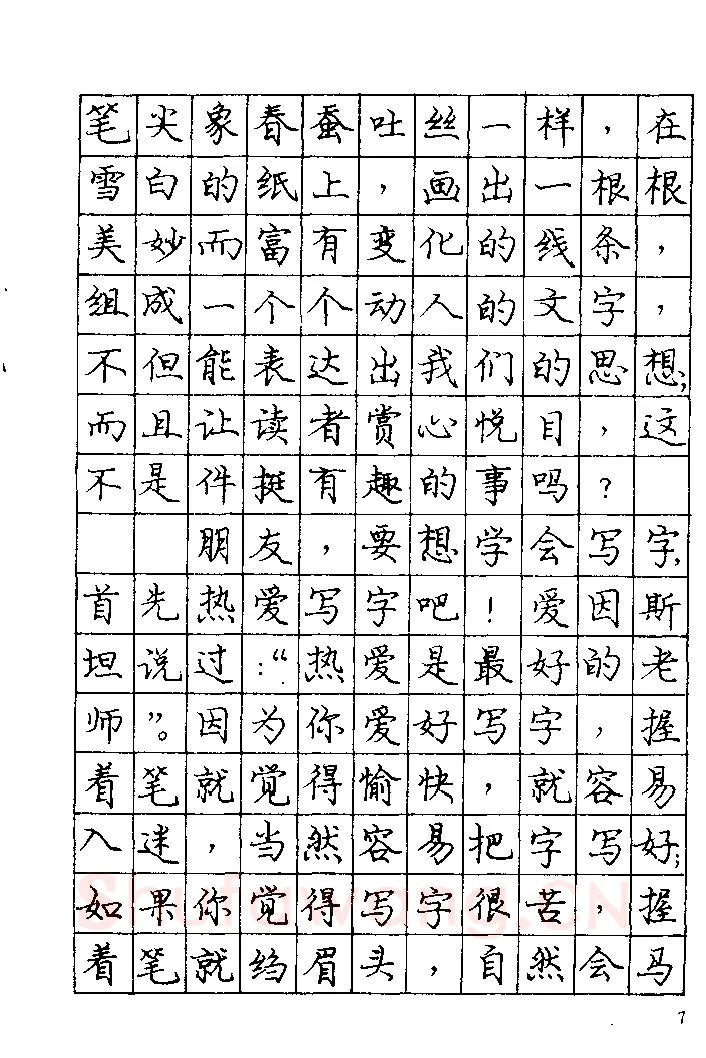 笔尖象春蚕吐丝一样，在
雪白的纸上，画出一根根
美妙而富有变化的线条，
组成一个个动人的文字，
不但能表达出我们的思想，
而且让读者赏心悦目，这
不是件挺有趣的事吗？
朋友，要想学会写字，
首先热爱写字吧！爱因斯
坦说过：“热爱是最好的老
师”。因为你爱好写字，握
着笔就觉得愉快，就容易
入迷，当然容易把字写好；
如果你觉得写字很苦，握
着笔就绉眉头，自然会马
7
Shufawang.CN